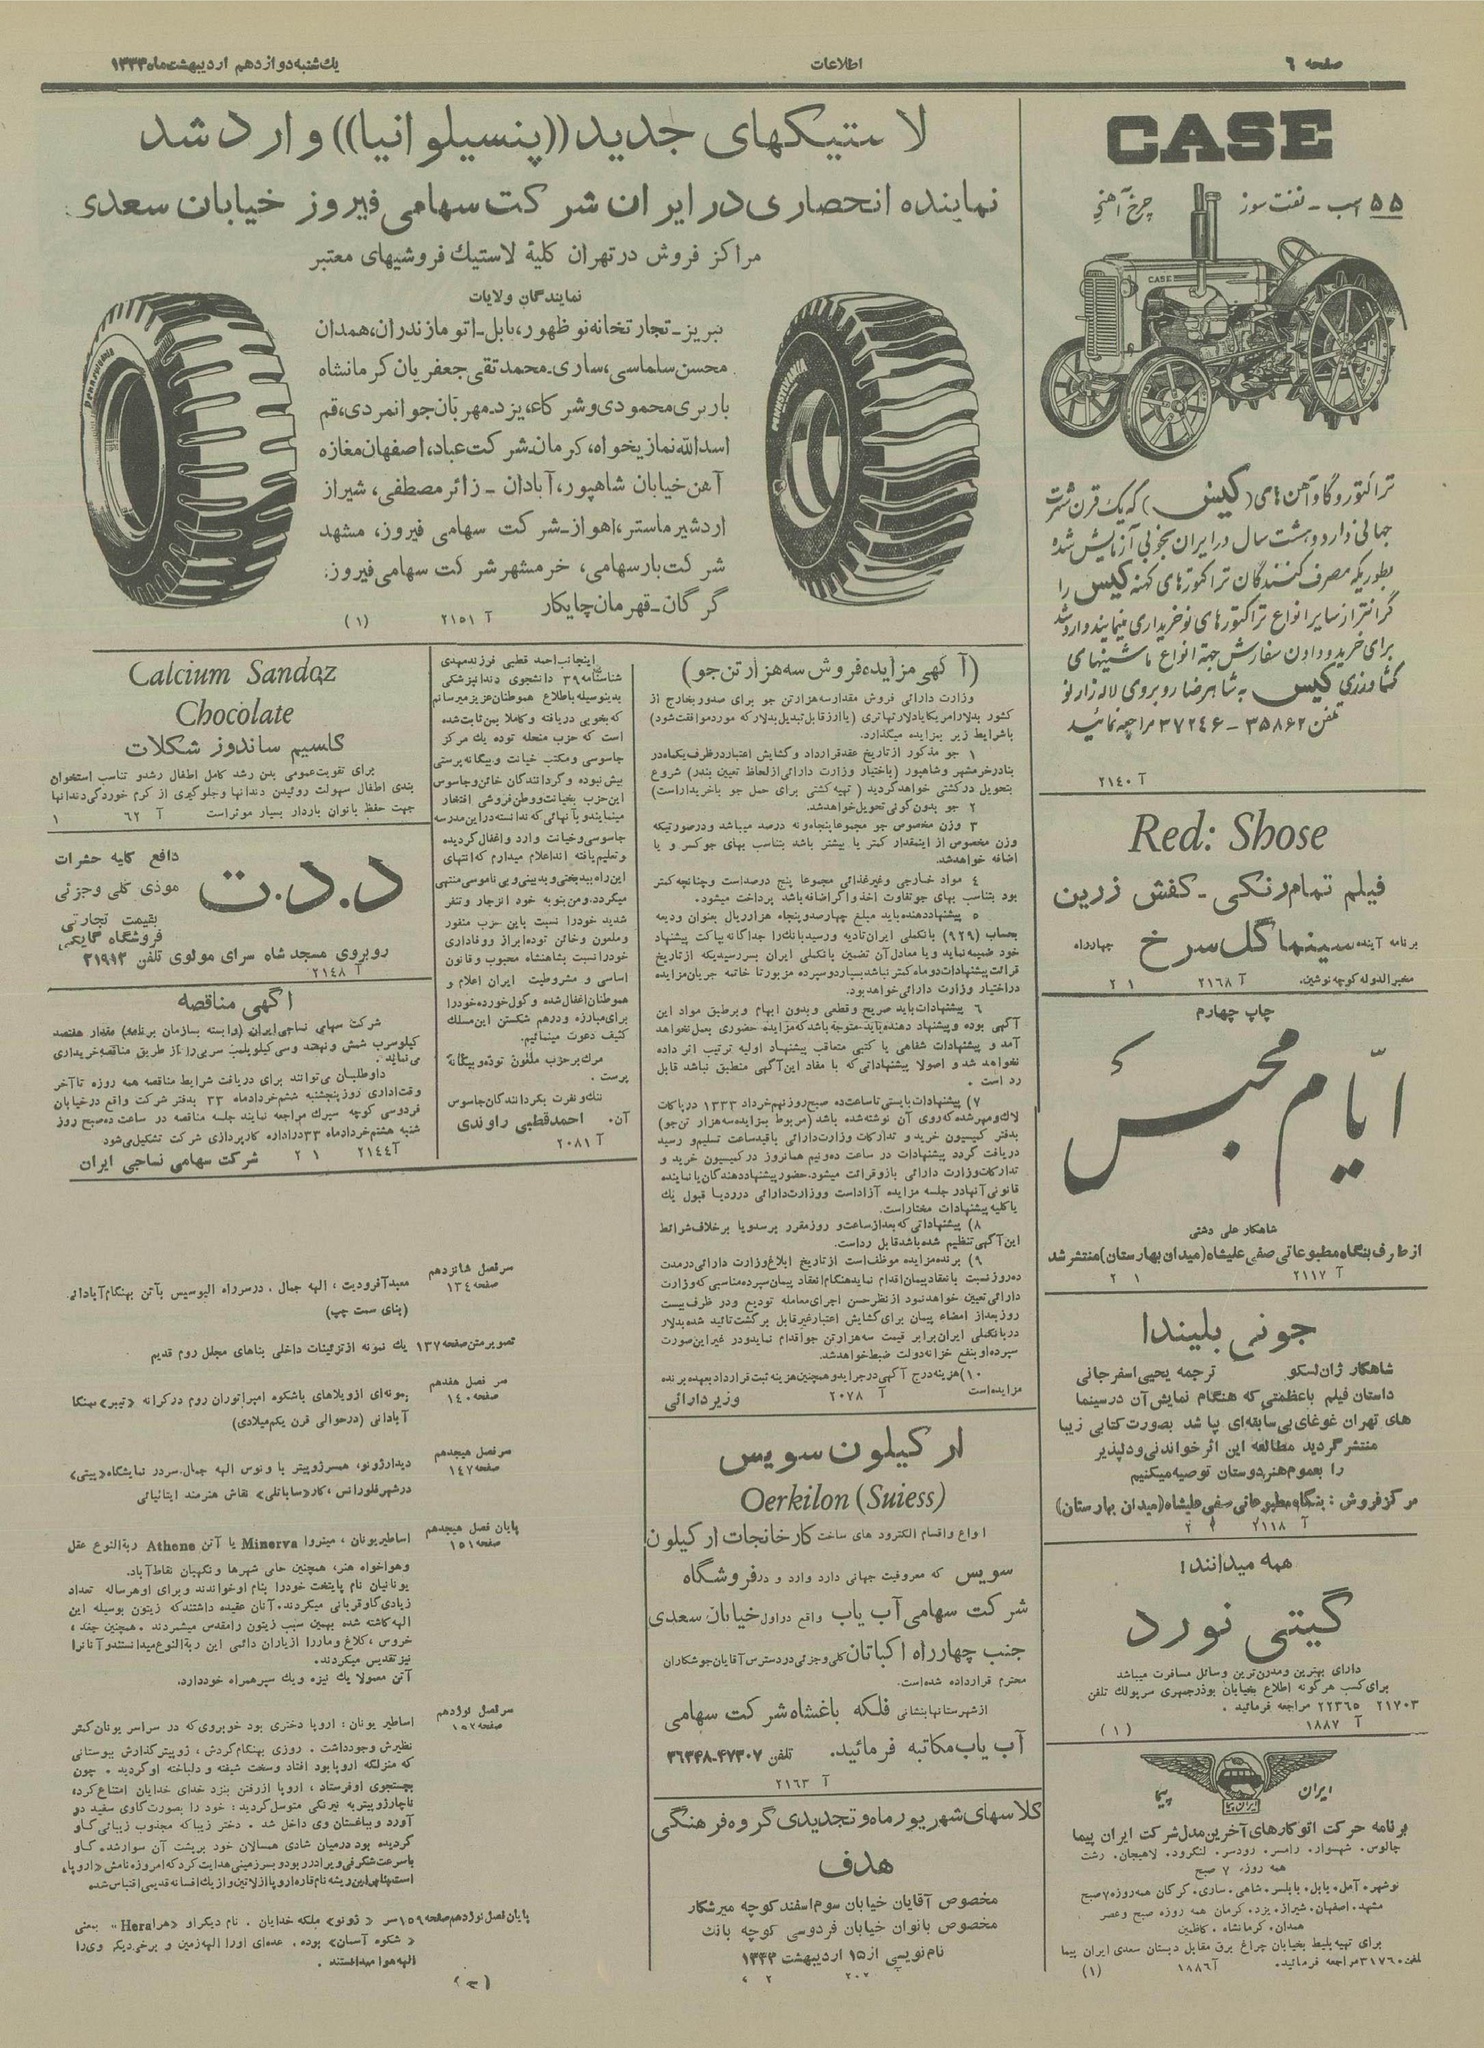 صفحه ٦
اطلاعات
یك‌شنبه دوازدهم اردیبهشت‌ماه ۱۳۳۳
CASE
۵۵ اسب - نفت سوز چرخ آهنی
CASE
تراکتور و گاوآهن های (کیس) که یک قرن شهرت
جهانی دارد و هشت سال در ایران بخوبی آزمایش شده
بطوریکه مصرف کنندگان تراکتورهای کهنه کیس را
گرانتر از سایر انواع تراکتورهای نو خریداری مینمایند وارد شد
برای خرید و دادن سفارش جهة انواع ماشینهای
کشاورزی کیس به شاهرضا روبروی لاله زار نو
تلفن ۳۵۸۶۲ - ۳۷۲۴۶ مراجعه نمائید
آ ۲۱۴۰
Red: Shose
فیلم تمام رنگی ـ کفش زرین
برنامه آینده سینما گل سرخ چهارراه
مخبرالدوله کوچه نوشین. آ ۲۱۶۸ ۱ ۲
چاپ چهارم
ایّام محبس
شاهکار علی دشتی
از طرف بنگاه مطبوعاتی صفی علیشاه (میدان بهارستان) منتشر شد
آ ۲۱۱۷ ۱ ۲
جونی بلیندا
شاهکار ژان لسکو ترجمه یحیی اسفرجانی
داستان فیلم باعظمتی که هنگام نمایش آن در سینما
های تهران غوغای بی سابقه‌ای بپا شد بصورت کتابی زیبا
منتشر گردید مطالعه این اثر خواندنی و دلپذیر
را بعموم هنردوستان توصیه میکنیم
مرکز فروش : بنگاه مطبوعاتی صفی علیشاه (میدان بهارستان)
آ ۲۱۱۸ ۲ ۲
همه میدانند!
گیتی نورد
دارای بهترین و مدرن‌ترین وسائل مسافرت میباشد
برای کسب هرگونه اطلاع بخیابان بوذرجمهری سرپولك تلفن
۲۱۷۰۳ ۲۲۳٦۵ مراجعه فرمائید .
آ ۱۸۸۷ (۱)
ایران پیما
ایران پیما
برنامه حرکت اتوکارهای آخرین مدل شرکت ایران پیما
چالوس. شهسوار. رامسر. رودسر. لنگرود. لاهیجان. رشت
همه روزه ۷ صبح
نوشهر. آمل. بابل. بابلسر. شاهی. ساری. گرگان همه روزه ۷ صبح
مشهد. اصفهان. شیراز. یزد. کرمان همه روزه صبح و عصر
همدان. کرمانشاه. کاظمین
برای تهیه بلیط بخیابان چراغ برق مقابل دبستان سعدی ایران پیما
تلفن ۳۱۷۶۰ مراجعه فرمائید. آ ۱۸۸٦ (۱)
لاستیکهای جدید ((پنسیلوانیا)) وارد شد
نماینده انحصاری در ایران شرکت سهامی فیروز خیابان سعدی
مراکز فروش در تهران کلیهٔ لاستیك فروشیهای معتبر
نمایندگان ولایات
تبریز ـ تجارتخانه نوظهور، بابل ـ اتو مازندران، همدان
محسن سلماسی، ساری ـ محمدتقی جعفریان کرمانشاه
باربری محمودی و شرکاء، یزد ـ مهربان جوانمردی، قم
اسدالله نمازیخواه، کرمان ـ شرکت عباد، اصفهان مغازه
آهن خیابان شاهپور، آبادان ـ زائر مصطفی، شیراز
اردشیر ماستر، اهواز ـ شرکت سهامی فیروز، مشهد
شرکت بار سهامی، خرمشهر شرکت سهامی فیروز.
گرگان ـ قهرمان چایکار
آ ۲۱۵۱ (۱)
PENNSYLVANIA
PENNSYLVANIA
(آگهی مزایده فروش سه هزار تن جو)
وزارت دارائی فروش مقدار سه هزار تن جو برای صدور بخارج از
کشور بدلار امریکا یا دلار تهاتری (یا ارز قابل تبدیل بدلار که مورد موافقت شود)
باشرایط زیر بمزایده میگذارد.
۱ جو مذکور از تاریخ عقد قرارداد و گشایش اعتبار در ظرف یکماه در
بنادر خرمشهر و شاهپور (باختیار وزارت دارائی از لحاظ تعیین بندر) شروع
بتحویل در کشتی خواهد گردید ( تهیه کشتی برای حمل جو با خریدار است)
۲ جو بدون گونی تحویل خواهد شد.
۳ وزن مخصوص جو مجموعا پنجاه و نه درصد میباشد و در صورتیکه
وزن مخصوص از اینمقدار کمتر یا بیشتر باشد بتناسب بهای جو کسر و یا
اضافه خواهد شد.
٤ مواد خارجی و غیرغذائی مجموعا پنج درصد است و چنانچه کمتر
بود بتناسب بهای جو تفاوت اخذ و اگر اضافه باشد پرداخت میشود.
۵ پیشنهاد دهنده باید مبلغ چهارصد و پنجاه هزار ریال بعنوان ودیعه
بحساب (۹۲۹) بانکملی ایران تادیه و رسید بانك را جداگانه بپاکت پیشنهاد
خود ضمیمه نماید و یا معادل آن تضمین بانکملی ایران بسررسیدیکه از تاریخ
قرائت پیشنهادات دو ماه کمتر نباشد بسپارد و سپرده مزبور تا خاتمه جریان مزایده
در اختیار وزارت دارائی خواهد بود.
٦ پیشنهادات باید صریح و قطعی و بدون ابهام و بر طبق مواد این
آگهی بوده و پیشنهاد دهنده باید متوجه باشد که مزایده حضوری بعمل نخواهد
آمد و پیشنهادات شفاهی یا کتبی متعاقب پیشنهاد اولیه ترتیب اثر داده
نخواهد شد و اصولا پیشنهاداتی که با مفاد این آگهی منطبق نباشد قابل
رد است .
۷) پیشنهادات بایستی تا ساعت ده صبح روز نهم خرداد ۱۳۳۳ در پاکات
لاك و مهر شده که روی آن نوشته شده باشد (مربوط بمزایده سه هزار تن جو)
بدفتر کمیسیون خرید و تدارکات وزارت دارائی با قید ساعت تسلیم و رسید
دریافت گردد پیشنهادات در ساعت ده و نیم همانروز در کمیسیون خرید و
تدارکات وزارت دارائی باز و قرائت میشود. حضور پیشنهاد دهندگان یا نماینده
قانونی آنها در جلسه مزایده آزاد است و وزارت دارائی در رد یا قبول یك
یا کلیه پیشنهادات مختار است.
۸) پیشنهاداتی که بعد از ساعت و روز مقرر برسد و یا بر خلاف شرائط
این آگهی تنظیم شده باشد قابل رد است.
۹) برنده مزایده موظف است از تاریخ ابلاغ وزارت دارائی در مدت
ده روز نسبت بانعقاد پیمان اقدام نماید هنگام انعقاد پیمان سپرده مناسبی که وزارت
دارائی تعیین خواهد نمود از نظر حسن اجرای معامله تودیع و در ظرف بیست
روز بعد از امضاء پیمان برای گشایش اعتبار غیر قابل برگشت تائید شده بدلار
در بانکملی ایران برابر قیمت سه هزار تن جو اقدام نماید و در غیر این صورت
سپرده او بنفع خزانه دولت ضبط خواهد شد.
۱۰) هزینه درج آگهی در جراید و همچنین هزینه ثبت قرارداد بعهده برنده
مزایده است آ ۲۰۷۸ وزیر دارائی
ارکیلون سویس
Oerkilon (Suiess)
انواع و اقسام الکترود های ساخت کارخانجات ارکیلون
سویس که معروفیت جهانی دارد وارد و در فروشگاه
شرکت سهامی آب یاب واقع در اول خیابان سعدی
جنب چهارراه اکباتان کلی و جزئی در دسترس آقایان جوشکاران
محترم قرار داده شده است.
از شهرستانها بنشانی فلکه باغشاه شرکت سهامی
آب یاب مکاتبه فرمائید. تلفن ۴۷۳۰۷-۳۶۳۴۸
آ ۲۱۶۳
کلاسهای شهریور ماه و تجدیدی گروه فرهنگی
هدف
مخصوص آقایان خیابان سوم اسفند کوچه میرشکار
مخصوص بانوان خیابان فردوسی کوچه بانك
نام نویسی از ۱۵ اردیبهشت ۱۳۳۳
Calcium Sandoz
Chocolate
کلسیم ساندوز شکلات
برای تقویت عمومی بدن رشد کامل اطفال رشد و تناسب استخوان
بندی اطفال سهولت روئیدن دندانها و جلوگیری از کرم خوردگی دندانها
جهت حفظ بانوان باردار بسیار موثر است آ ٦۲ ۱
د.د.ت
دافع کلیه حشرات
موذی کلی و جزئی
بقیمت تجارتی
فروشگاه گایگی
روبروی مسجد شاه سرای مولوی تلفن ۳۱۹۹۳
آ ۲۱۴۸
آگهی مناقصه
شرکت سهامی نساجی ایران (وابسته بسازمان برنامه) مقدار هفتصد
کیلو سرب شمش و نهصد و سی کیلو پلمب سربی را از طریق مناقصه خریداری
می‌نماید.
داوطلبان می‌توانند برای دریافت شرایط مناقصه همه روزه تا آخر
وقت اداری روز پنجشنبه ششم خرداد ماه ۳۳ بدفتر شرکت واقع در خیابان
فردوسی کوچه سیرك مراجعه نمایند جلسه مناقصه در ساعت ده صبح روز
شنبه هشتم خرداد ماه ۳۳ در اداره کارپردازی شرکت تشکیل می‌شود
آ ۲۱۴۴ ۱ ۲ شرکت سهامی نساجی ایران
اینجانب احمد قطبی فرزند مهدی
شناسنامه ۳۹ دانشجوی دندانپزشکی
بدینوسیله باطلاع هموطنان عزیز میرسانم
که بخوبی دریافته و کاملا بمن ثابت شده
است که حزب منحله توده یك مرکز
جاسوسی و مکتب خیانت و بیگانه پرستی
بیش نبوده و گردانندگان خائن و جاسوس
این حزب بخیانت و وطن فروشی افتخار
مینمایند و بآنهائی که ندانسته در این مدرسه
جاسوسی و خیانت وارد و اغفال گردیده
و تعلیم یافته اند اعلام میدارم که انتهای
این راه ببدبختی و بدبینی و بی ناموسی منتهی
میگردد. و من بنوبه خود انزجار و تنفر
شدید خود را نسبت باین حزب منفور
و ملعون و خائن توده ابراز و وفاداری
خود را نسبت بشاهنشاه محبوب و قانون
اساسی و مشروطیت ایران اعلام و
هموطنان اغفال شده و گول خورده خود را
برای مبارزه و درهم شکستن این مسلك
کثیف دعوت مینمائیم.
مرگ بر حزب ملعون توده و بیگانه
پرست .
ننك و نفرت بگردانندگان جاسوس
آن. احمد قطبی راوندی
آ ۲۰۸۱
سرفصل شانزدهم
صفحه ۱۳٤
معبد آفرودیت ، الهه جمال ، در سر راه الیوسیس بآتن بهنگام آبادانی.
(بنای سمت چپ)
تصویر متن صفحه ۱۳۷ یك نمونه از تزئینات داخلی بناهای مجلل روم قدیم
سر فصل هفدهم
صفحه ۱٤۰
نمونه‌ای از ویلاهای باشکوه امپراتوران روم در کرانه «تیبر» بهنگام
آبادانی (در حوالی قرن یکم میلادی)
سرفصل هیجدهم
صفحه ۱٤۷
دیدار ژونو، همسر ژوپیتر با ونوس الهه جمال. سر در نمایشگاه «پیتی»
در شهر فلورانس ، کار «ساباتلی» نقاش هنرمند ایتالیائی
پایان فصل هیجدهم
صفحه ۱۵۱
اساطیر یونان ، مینروا Minerva یا آتن Athene ربة النوع عقل
و هواخواه هنر، همچنین حامی شهرها و نگهبان نقاط آباد.
یونانیان نام پایتخت خود را بنام او خواندند و برای او هر ساله تعداد
زیادی گاو قربانی میکردند. آنان عقیده داشتند که زیتون بوسیله این
الهه کاشته شده بهمین سبب زیتون را مقدس میشمردند . همچنین جغد ،
خروس ، کلاغ و مار را از یاران دائمی این ربة النوع میدانستند و آنانرا
نیز تقدیس میکردند.
آتن معمولا یك نیزه و یك سپر همراه خود دارد.
سرفصل نوزدهم
صفحه ۱۵۲
اساطیر یونان : اروپا دختری بود خوبروی که در سراسر یونان کمتر
نظیرش وجود داشت . روزی بهنگام گردش ، ژوپیتر گذارش ببوستانی
که منزلگه اروپا بود افتاد و سخت شیفته و دلباخته او گردید . چون
بجستجوی او فرستاد ، اروپا از رفتن بنزد خدای خدایان امتناع کرد.
ناچار ژوپیتر به نیرنگی متوسل گردید : خود را بصورت گاوی سفید در
آورد و بباغستان وی داخل شد . دختر زیبا که مجذوب زیبائی گاو
گردیده بود در میان شادی همسالان خود بر پشت آن سوار شد. گاو
با سرعت شگرفی ویرا در ربود و بسرزمینی هدایت کرد که امروزه نامش «اروپا»
است. بنابراین ریشه نام قاره اروپا از لاتین و از یك افسانه قدیمی اقتباس شده
پایان فصل نوزدهم صفحه ۱۵۹ سر «ژونو» ملکه خدایان . نام دیگر او «هرا Hera» یعنی
« شکوه آسمان» بوده . عده‌ای او را الهه زمین و برخی دیگر وی را
الهه هوا میدانستند .
(۳)